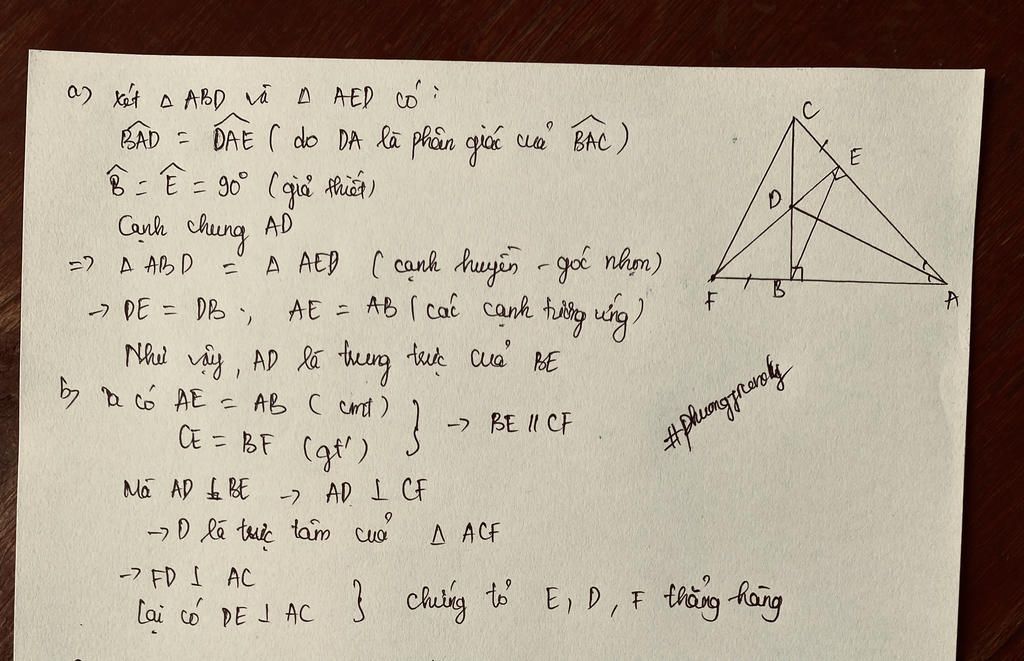 a) Xét Δ ABD và Δ AED có:
BAD = DAE ( do DA là phân giác của BAC )
B = E = 90° (giả thiết)
Cạnh chung AD
=> Δ ABD = Δ AED (cạnh huyền - góc nhọn)
-> DE = DB ; AE = AB (các cạnh tương ứng)
Như vậy, AD là trung trực của BE
b) Ta có AE = AB ( cmt )
CE = BF (gt)
} -> BE // CF
Mà AD ⊥ BE -> AD ⊥ CF
-> D là trực tâm của Δ ACF
-> FD ⊥ AC
Lại có DE ⊥ AC
} chứng tỏ E, D, F thẳng hàng
C
E
D
F
B
A